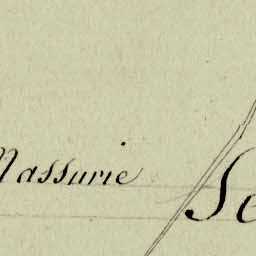 Massurie Se